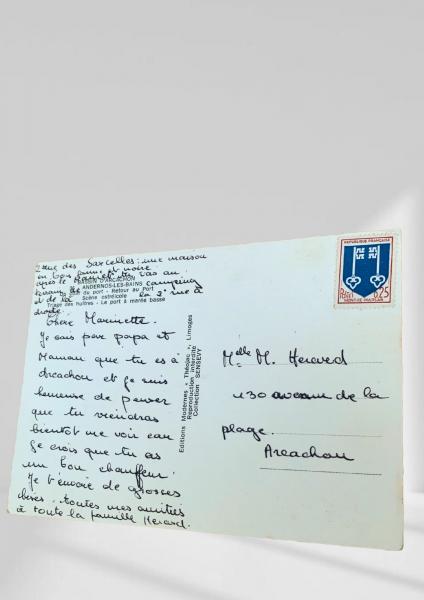 2 rue des Sarcelles: une maison
en bois jaune et noire
après le tu vas au
camping
et de là la 2e rue à
droite.
BASSIN D'ARCACHON
ANDERNOS-LES-BAINS
du port - Retour au Port
Scène ostréicole
Triage des huîtres - Le port à marée basse
Chère Marinette.
Je sais par papa et
Maman que tu es à
Arcachon et je suis
heureuse de penser
que tu viendras
bientôt me voir car
je crois que tu as
un bon chauffeur.
Je t'envoie de grosses
bises. toutes mes amitiés
à toute la famille Herard.
Editions Modernes Théojac, Limoges
Reproduction interdite
Collection SENSEVY
REPUBLIQUE FRANÇAISE
0,25
MONT-DE-MARSAN
Melle M. Herard
130 avenue de la
plage.
Arcachon